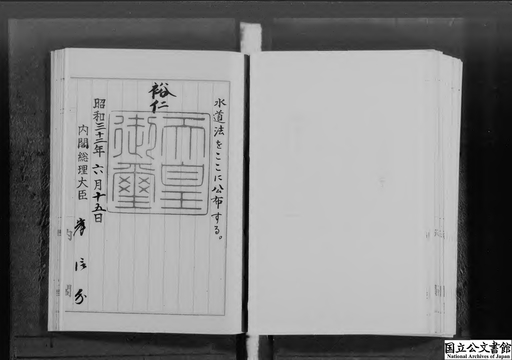 水道法をここに公布する。
裕仁
天皇
御璽
昭和三十二年六月十五日
内閣総理大臣 岸信介
内閣
国立公文書館
National Archives of Japan